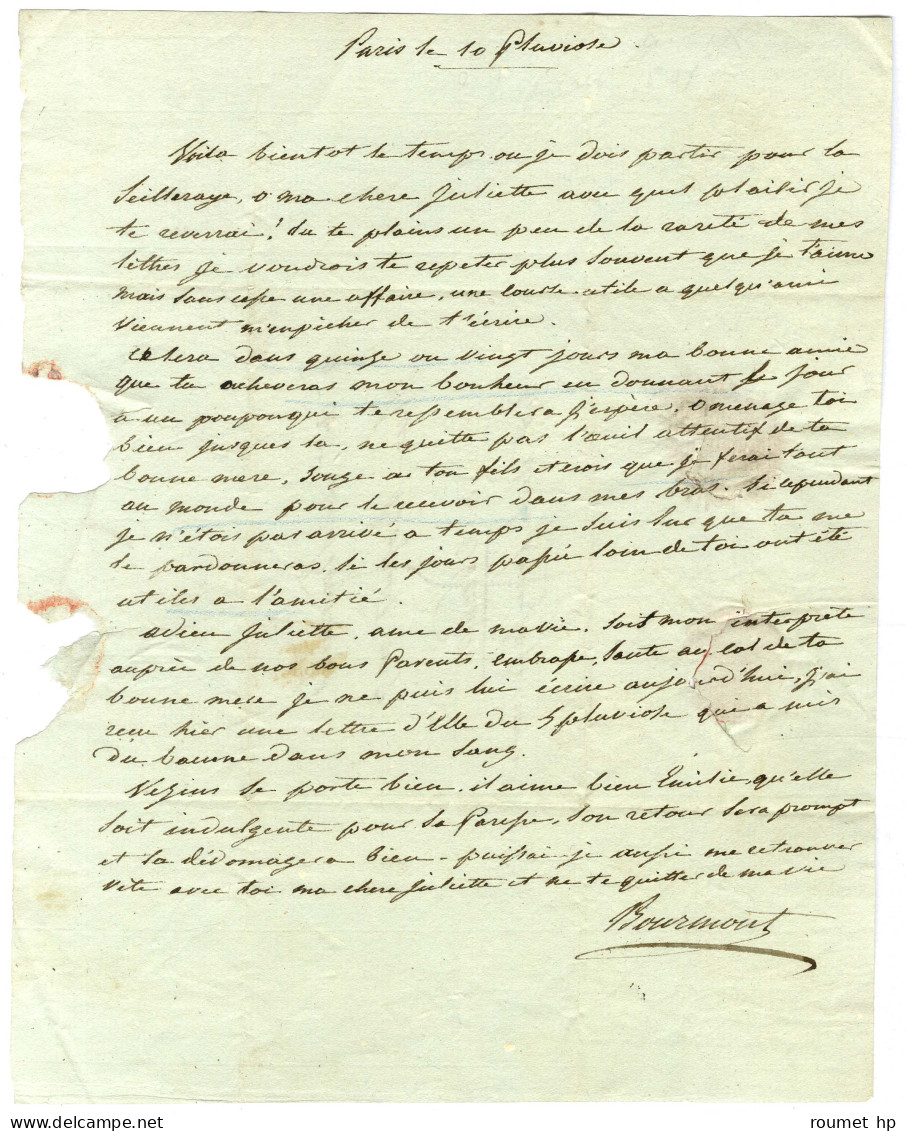 Paris le 10 Pluviose.
Voila bientot le temps ou je dois partir pour la
Seilleraye, o ma chere Juliette avec quel plaisir je
te reverrai! tu te plains un peu de la rareté de mes
lettres je voudrois te repeter plus souvent que je t'aime
mais sans cesse une affaire, une course utile a quelqu'ami
viennent m'empicher de t'écrire.
ce sera dans quinze ou vingt jours ma bonne amie
que tu acheveras mon bonheur en donnant le jour
a un poupon qui te ressemblera j'espère. o menage toi
bien jusques la, ne quitte pas l'œuil attentif de ta
bonne mere, songe a ton fils et crois que je ferai tout
au monde pour le recevoir dans mes bras. si cependant
je n'étois pas arrivé a temps je suis sur que tu me
le pardonneras si les jours passée loin de toi ont été
utiles a l'amitié.
adieu Juliette, ame de ma vie. soit mon interprète
auprèe de nos bons Parents, embrasse, saute au col de ta
bonne mere je ne puis lui écrire aujourd'hui, j'ai
recu hier une lettre d'Elle du 5 pluviose qui a mis
du baume dans mon sang.
Vezins se porte bien. il aime bien Emilie, qu'elle
soit indulgente pour sa Paresse, son retour sera prompt
et la dédomagera bien - puissai-je aussi me retrouver
vite avec toi ma chere Juliette et ne te quitter de ma vie
Bourmont
roumet hp